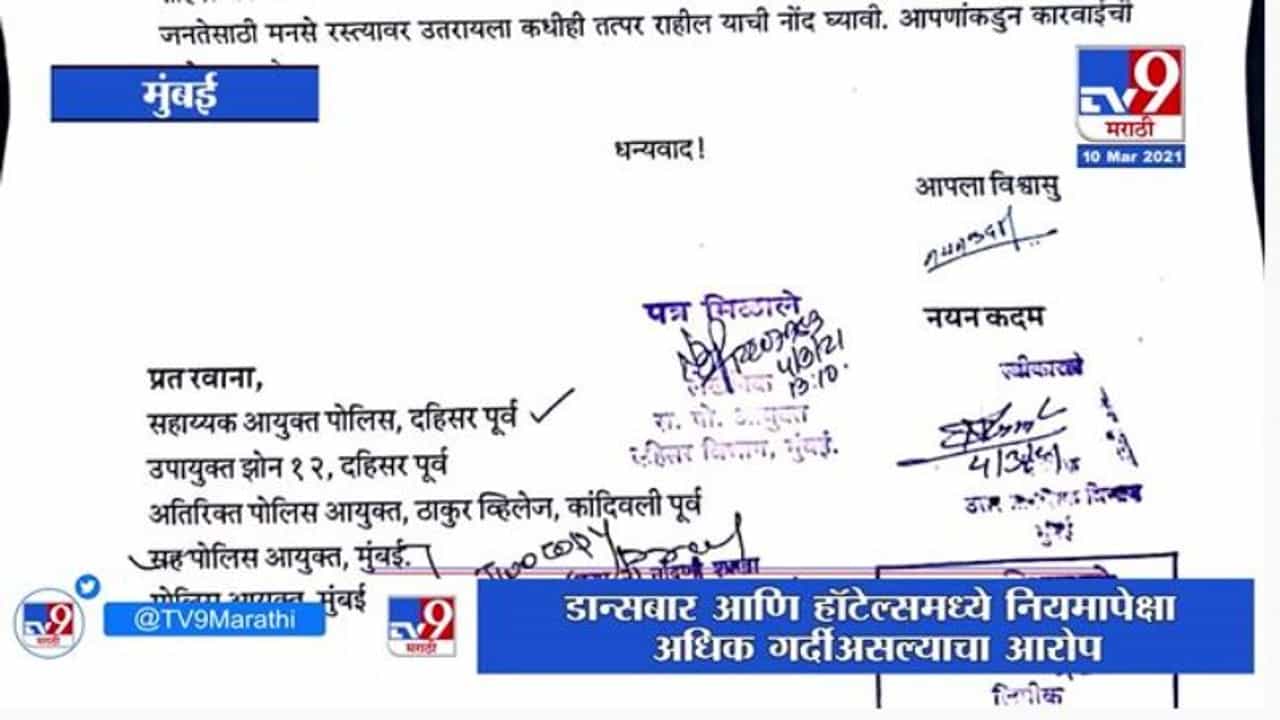 जनतेसाठी मनसे रस्त्यावर उतरायला कधीही तत्पर राहील याची नोंद घ्यावी. आपणांकडुन कारवाईची
मुंबई
TV9
मराठी
10 Mar 2021
धन्यवाद!
आपला विश्वासु
नयन कदम
पत्र मिळाले
4/3/21
13:10.
प्रत रवाना,
सहाय्यक आयुक्त पोलिस, दहिसर पूर्व
उपायुक्त झोन १२, दहिसर पूर्व
अतिरिक्त पोलिस आयुक्त, ठाकुर व्हिलेज, कांदिवली पूर्व
सह पोलिस आयुक्त, मुंबई.
पोलिस आयुक्त, मुंबई
स्वीकारले
दहिसर विभाग, मुंबई.
मुंबई
TV9
मराठी
@TV9Marathi
TV9
मराठी
डान्सबार आणि हॉटेल्समध्ये नियमापेक्षा
अधिक गर्दीअसल्याचा आरोप
लिपीक